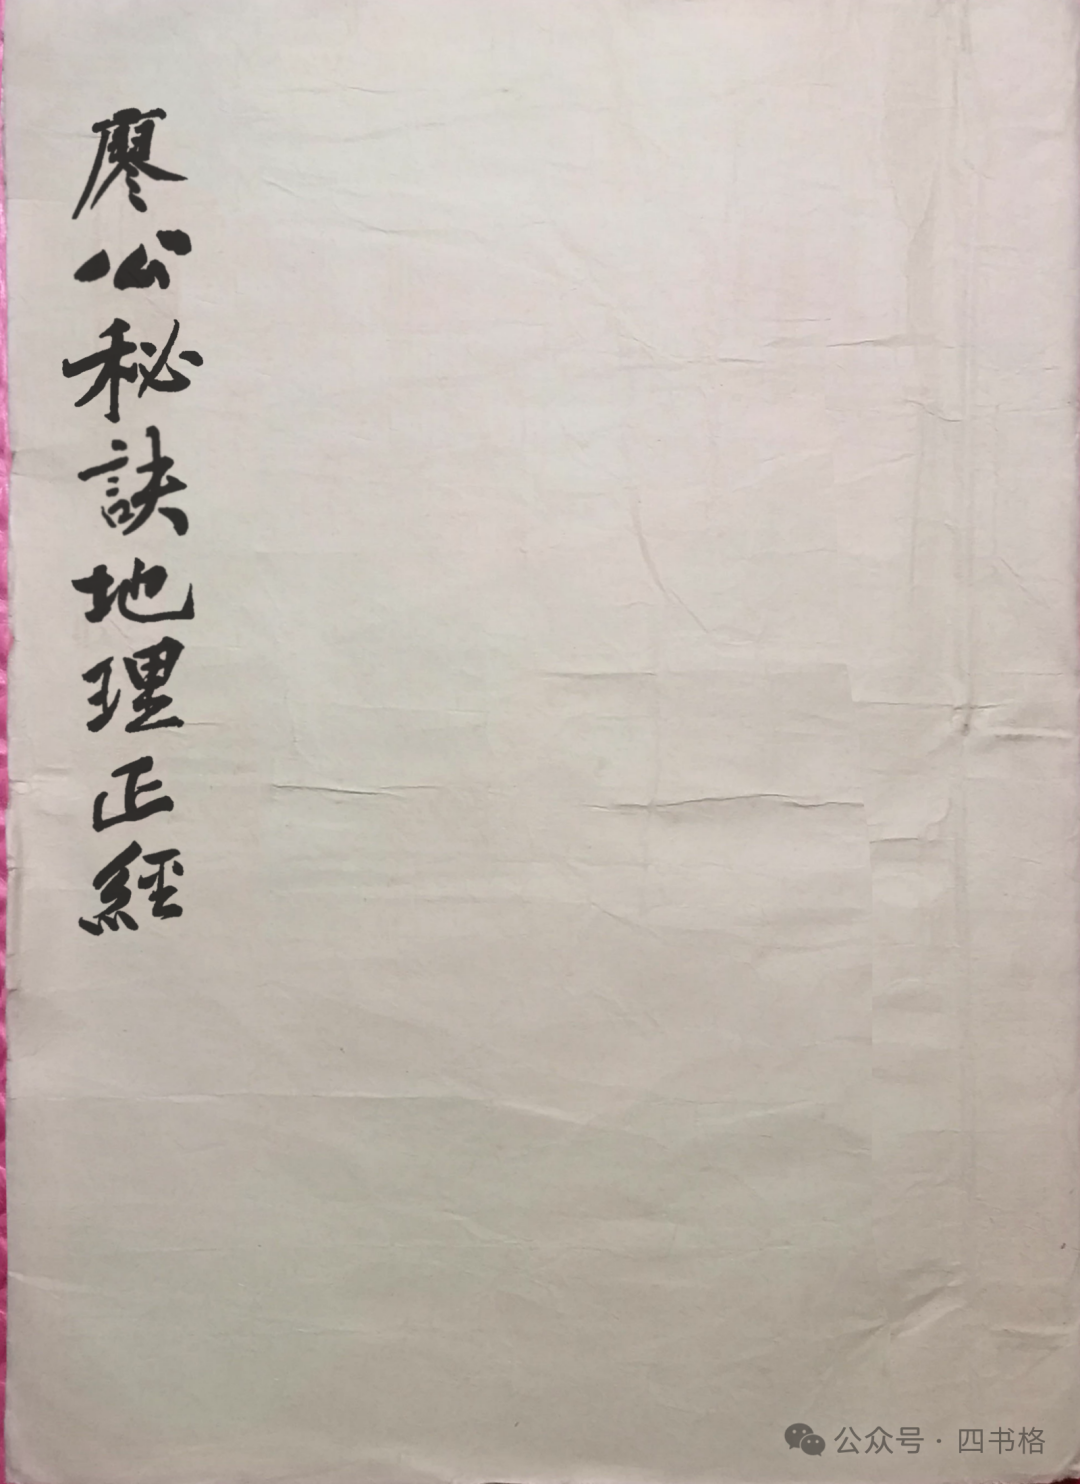 廖公秘訣地理正經
公众号 · 四书格